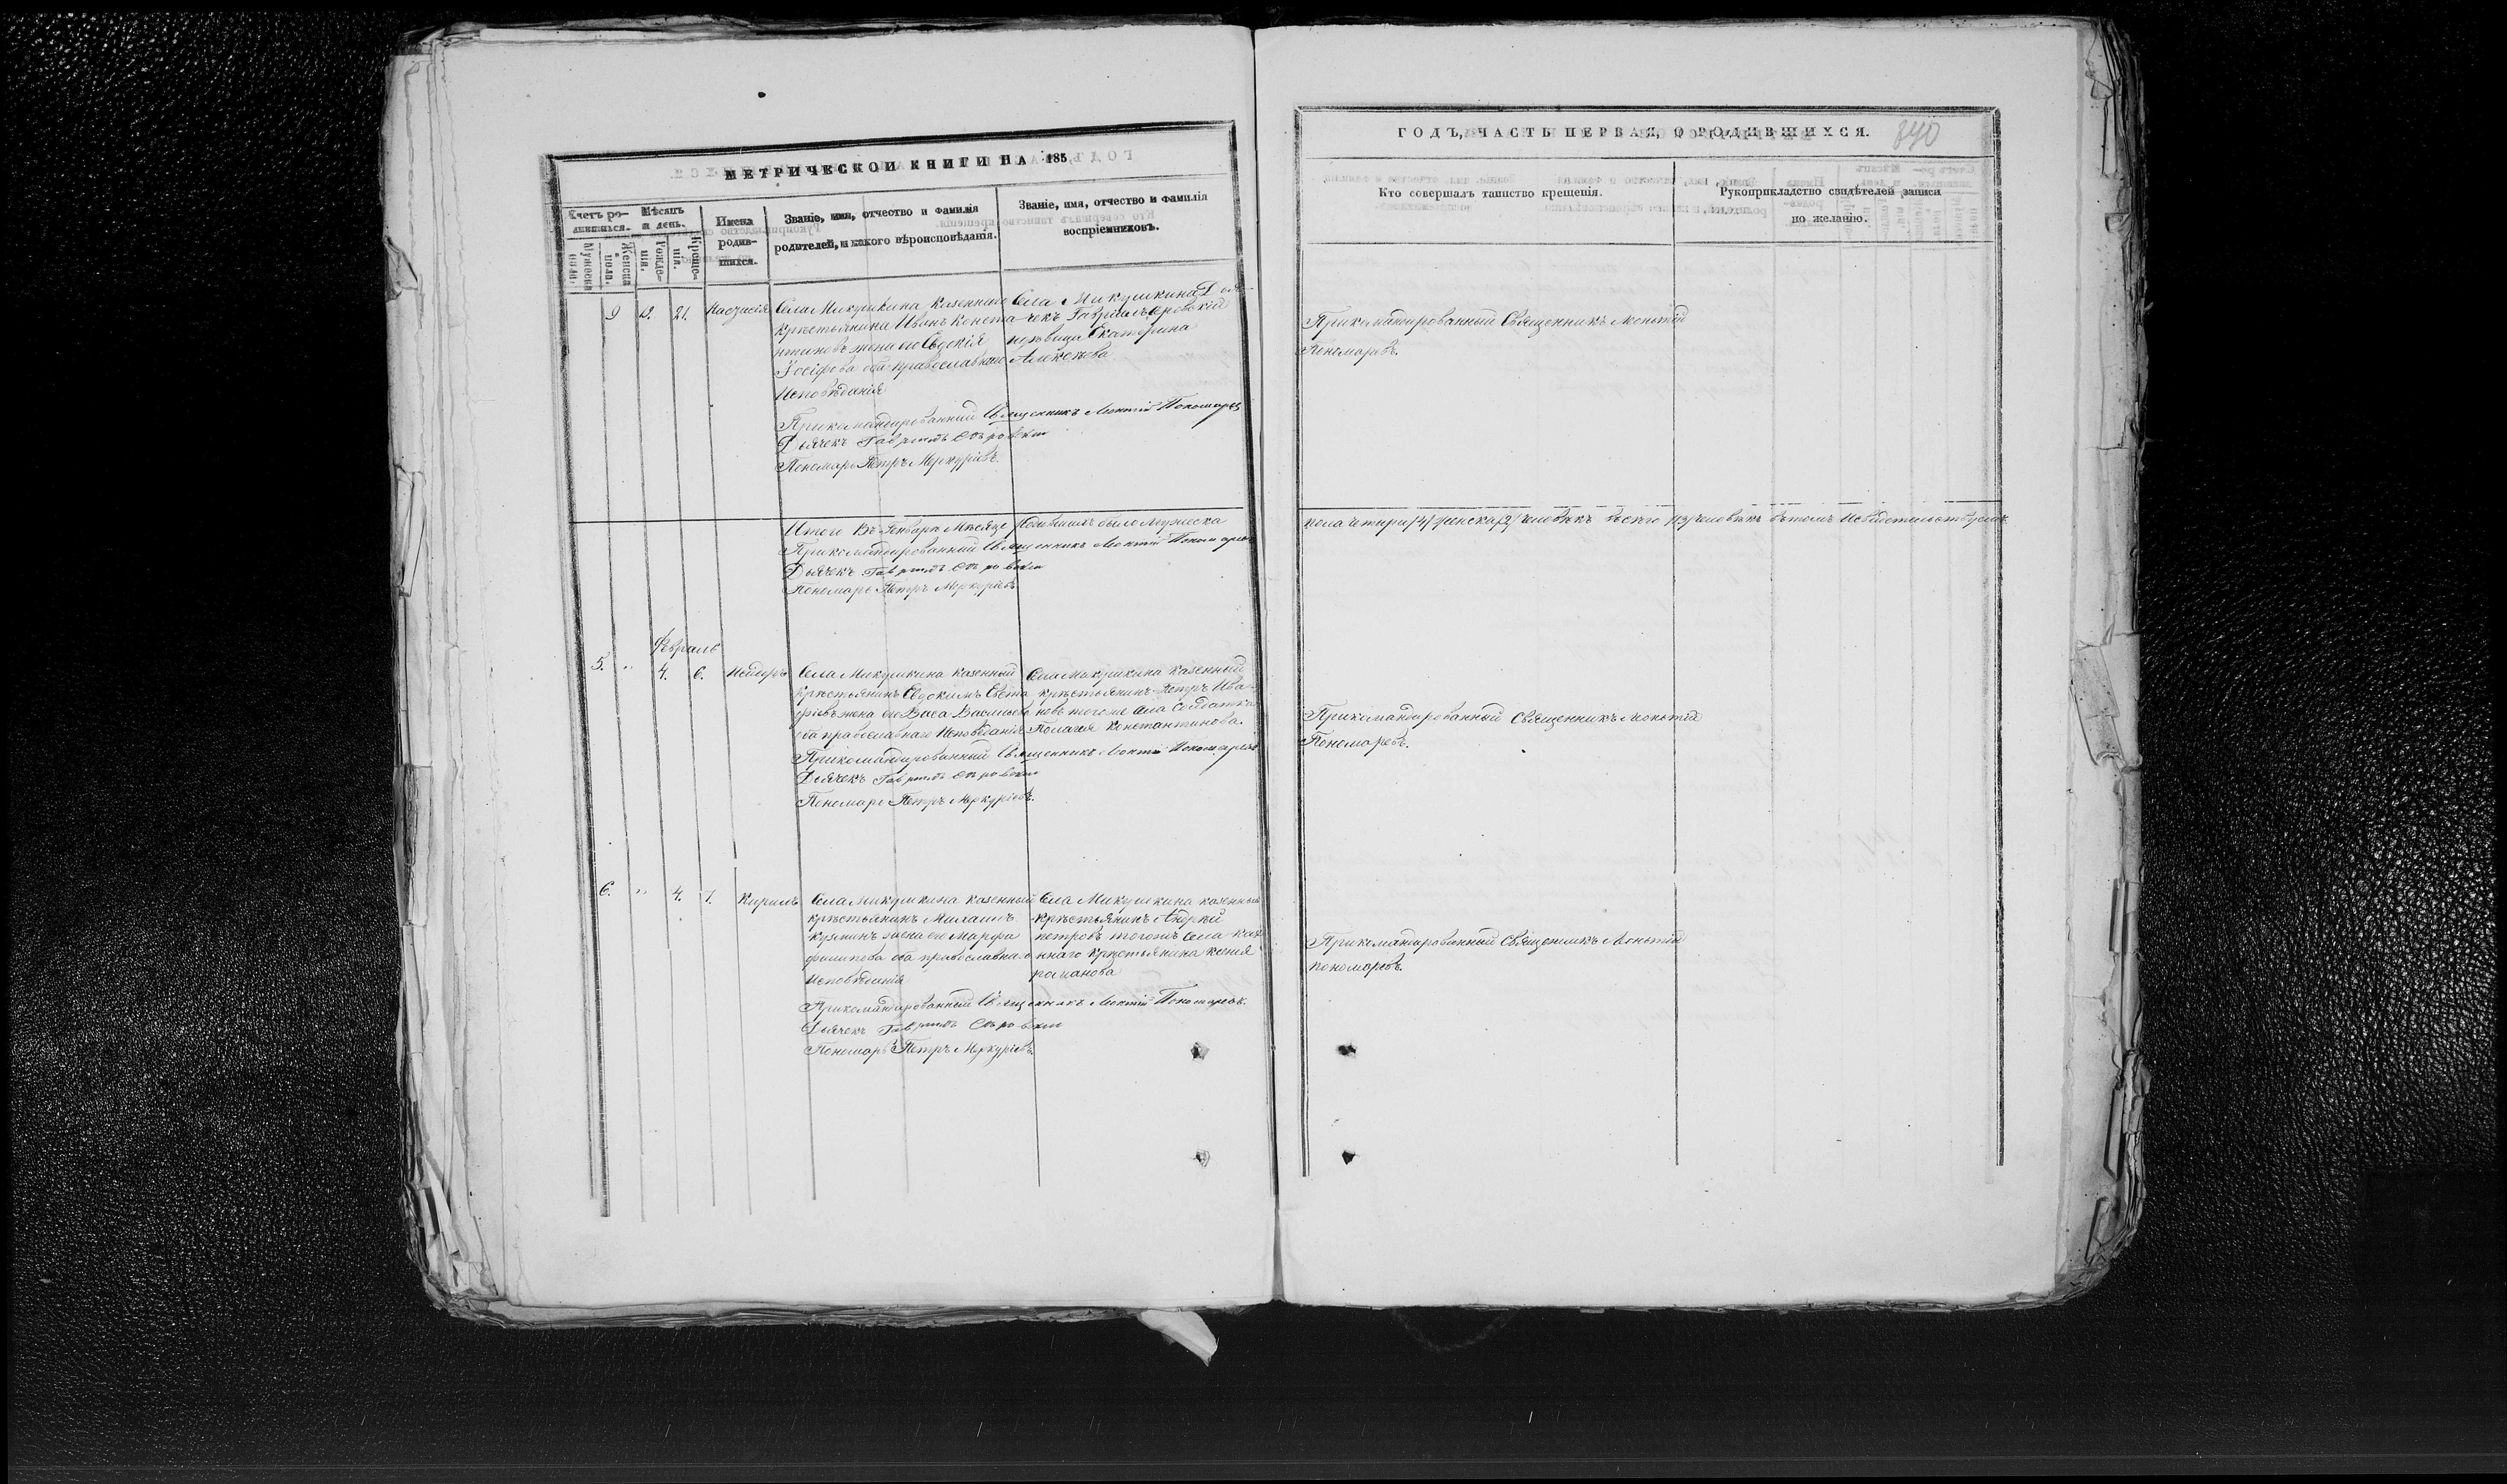 МЕТРИЧЕСКОЙ КНИГИ НА 185
Счетъ ро-
дившихся.
Мѣсяцъ
и день.
Имена
родив-
шихся.
Званіе, имя, отчество и фамилія
родителей, и какого вѣроисповѣданія.
Званіе, имя, отчество и фамилія
воспріемниковъ.
Мужеска
пола.
Женска
пола.
Рожде-
нія.
Креще-
нія.
9 21.
Села Микушкина казенный
крестьянинъ Иванъ Конста
нтиновъ жена его Евдокія
Іосифова оба православнаго
Исповѣданія
Села Микушкина Дья
чекъ Гавріилъ
Екатерина
Алексеева
Прикомандированный Священникъ Леонтій Пономаревъ
Дьячекъ Гавріилъ
Пономарь Петръ Меркурьевъ.
Итого Въ Генварѣ Мѣсяце Родившихъ было мужеска
Прикомандированный Священникъ Леонтій Пономаревъ
Дьячекъ Гавріилъ
Пономарь Петръ Меркурьевъ
Февраль
5. " 4. 6.
Села Микушкина казенный
крестьянинъ Евдокимъ
жена его Васа Васильева
оба православнаго Исповѣданія
Села Микушкина казенный
крестьянинъ Петръ Ива
новъ тогоже села Солдатка
Пелагея Константинова.
Прикомандированный Священникъ Леонтій Пономаревъ
Дьячекъ Гавріилъ
Пономарь Петръ Меркурьевъ.
6. " 4. 7. Кирилъ
Села Микушкина казенный
крестьянинъ Михаилъ
кузминъ жена его Марфа
филипова оба православнаго
исповѣданія
Села Микушкина казенный
крестьянинъ Андрей
петровъ тогожъ села каз
еннаго крестьянина
романова
Прикомандированный Священникъ Леонтій Пономаревъ.
Дьячекъ Гавріилъ
Пономарь Петръ Меркурьевъ
ГОДЪ, ЧАСТЬ ПЕРВАЯ, О РОДИВШИХСЯ. 340
Кто совершалъ таинство крещенія.
Рукоприкладство свидѣтелей записи
по желанію.
Прикомандированный Священникъ Леонтій
Пономаревъ.
пола четыри /4/ женска /9/ человѣкъ всего /13/ человѣкъ вътомъ Исвидетельствуемъ
Прикомандированный Священникъ Леонтій
Пономаревъ.
Прикомандированный Священникъ Леонтій
пономаревъ.